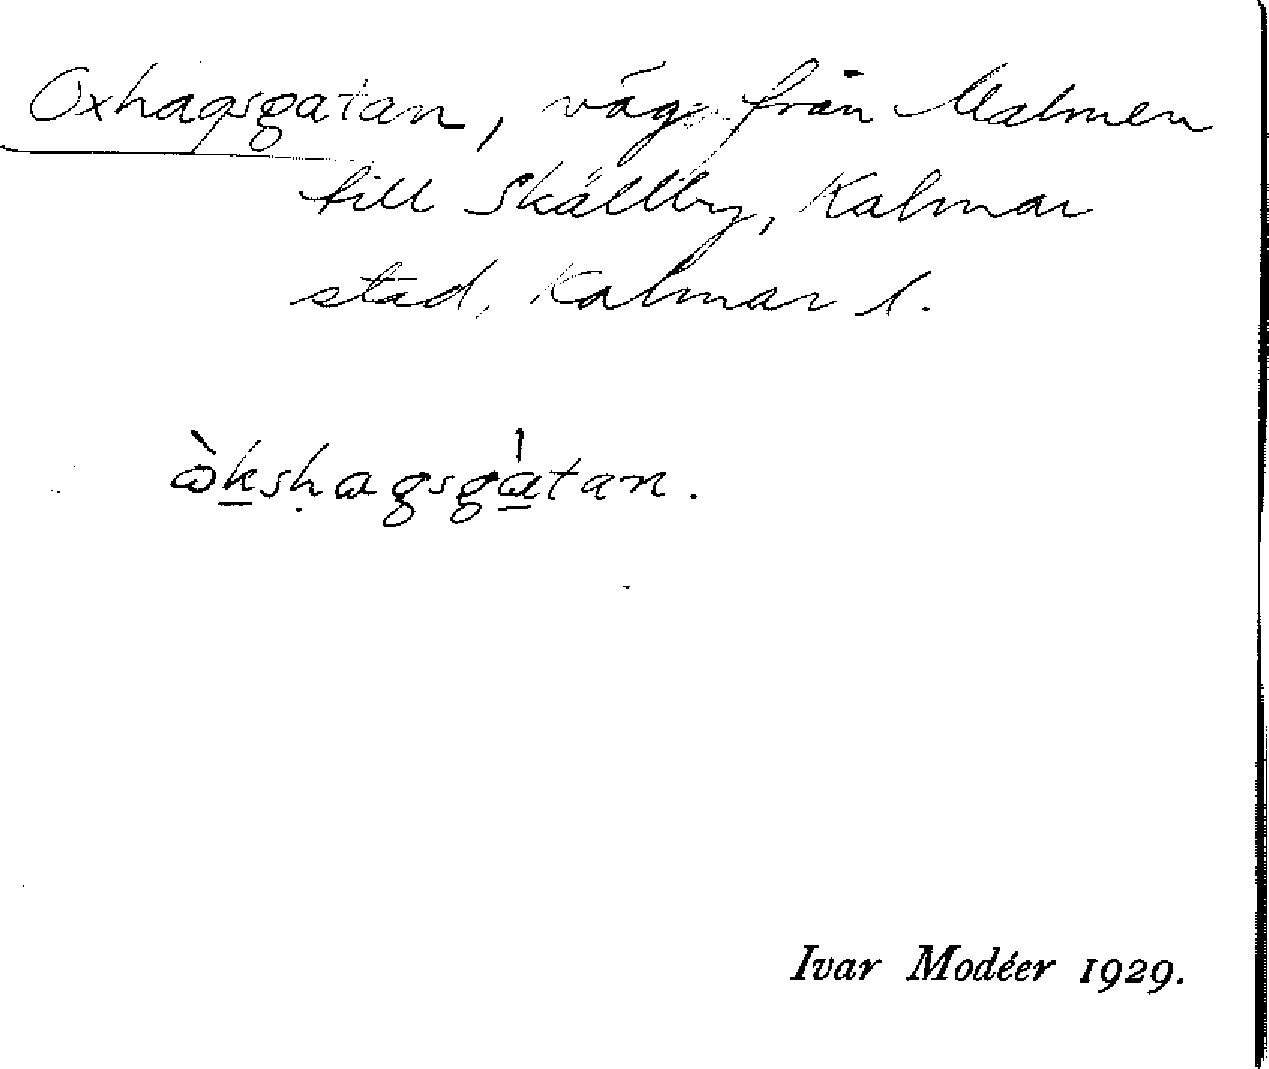 Oxhagsgatan, väg från Malmen
till Skällby, Kalmar
stad, Kalmar l.
ὼkshagsgàtan.
Ivar Modéer 1929.